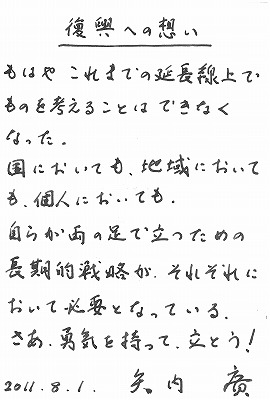 復興への想い
もはや これまでの延長線上で
ものを考えることは できなく
なった。
国においても、地域において
も、個人においても。
自らが両の足で立つための
長期的戦略が、それぞれに
おいて必要となっている。
さあ、勇気を持って、立とう！
2011.8.1. 矢内 廣